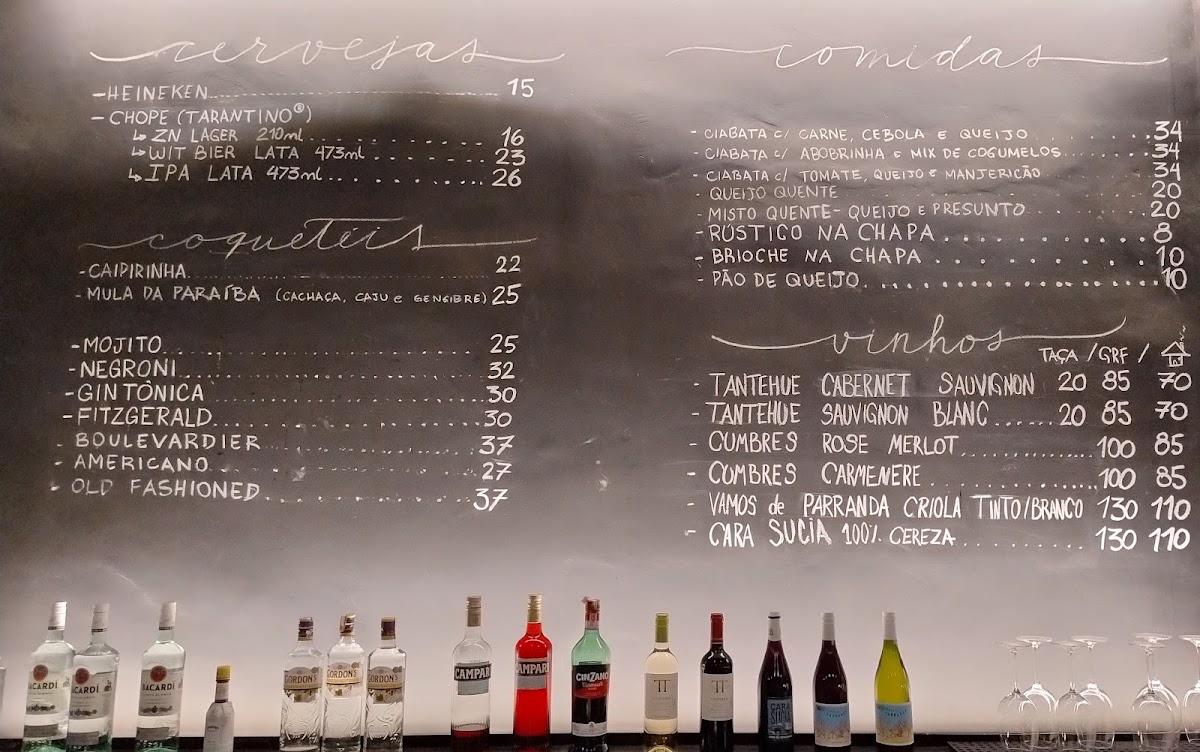 cervejas
- HEINEKEN 15
- CHOPE (TARANTINO®)
↳ ZN LAGER 210ml 16
↳ WIT BIER LATA 473ml 23
↳ IPA LATA 473ml 26
coquetéis
- CAIPIRINHA 22
- MULA DA PARAÍBA (CACHAÇA, CAJU e GENGIBRE) 25
- MOJITO 25
- NEGRONI 32
- GIN TÔNICA 30
- FITZGERALD 30
- BOULEVARDIER 37
- AMERICANO 27
- OLD FASHIONED 37
comidas
- CIABATA c/ CARNE, CEBOLA E QUEIJO 34
- CIABATA c/ ABOBRINHA E MIX DE COGUMELOS 34
- CIABATA c/ TOMATE, QUEIJO E MANJERICÃO 34
- QUEIJO QUENTE 20
- MISTO QUENTE - QUEIJO E PRESUNTO 20
- RÚSTICO NA CHAPA 8
- BRIOCHE NA CHAPA 10
- PÃO DE QUEIJO 10
vinhos
TAÇA / GRF /
- TANTEHUE CABERNET SAUVIGNON 20 85 70
- TANTEHUE SAUVIGNON BLANC 20 85 70
- CUMBRES ROSE MERLOT 100 85
- COMBRES CARMENERE 100 85
- VAMOS de PARRANDA CRIOLA TINTO/BRANCO 130 110
- CARA SUCIA 100% CEREZA 130 110
BACARDÍ
BACARDÍ
BACARDÍ
GORDON'S
GORDON'S
GORDON'S
CAMPARI
CAMPARI
CINZANO
CARA SUCIA